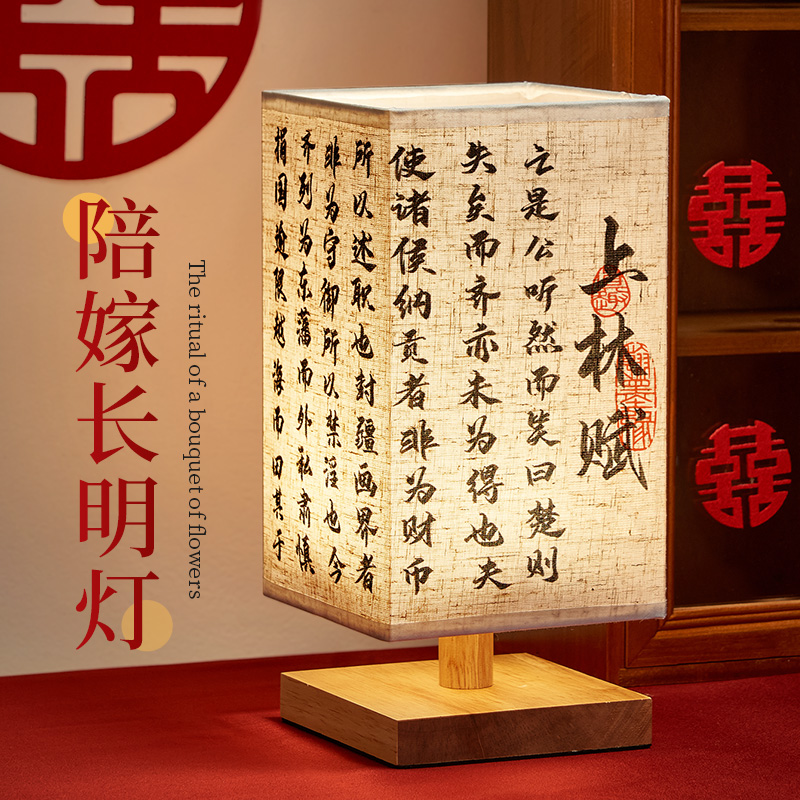 陪嫁长明灯
The ritual of a bouquet of flowers
上林赋
亡是公听然而笑曰楚则
失矣而齐亦未为得也夫
使诸侯纳贡者非为财币
所以述职也封疆画界者
非为守御所以禁淫也今
齐列为东藩而外私肃慎
捐国逾限越海而田其于
翰墨缘
囍
囍
囍